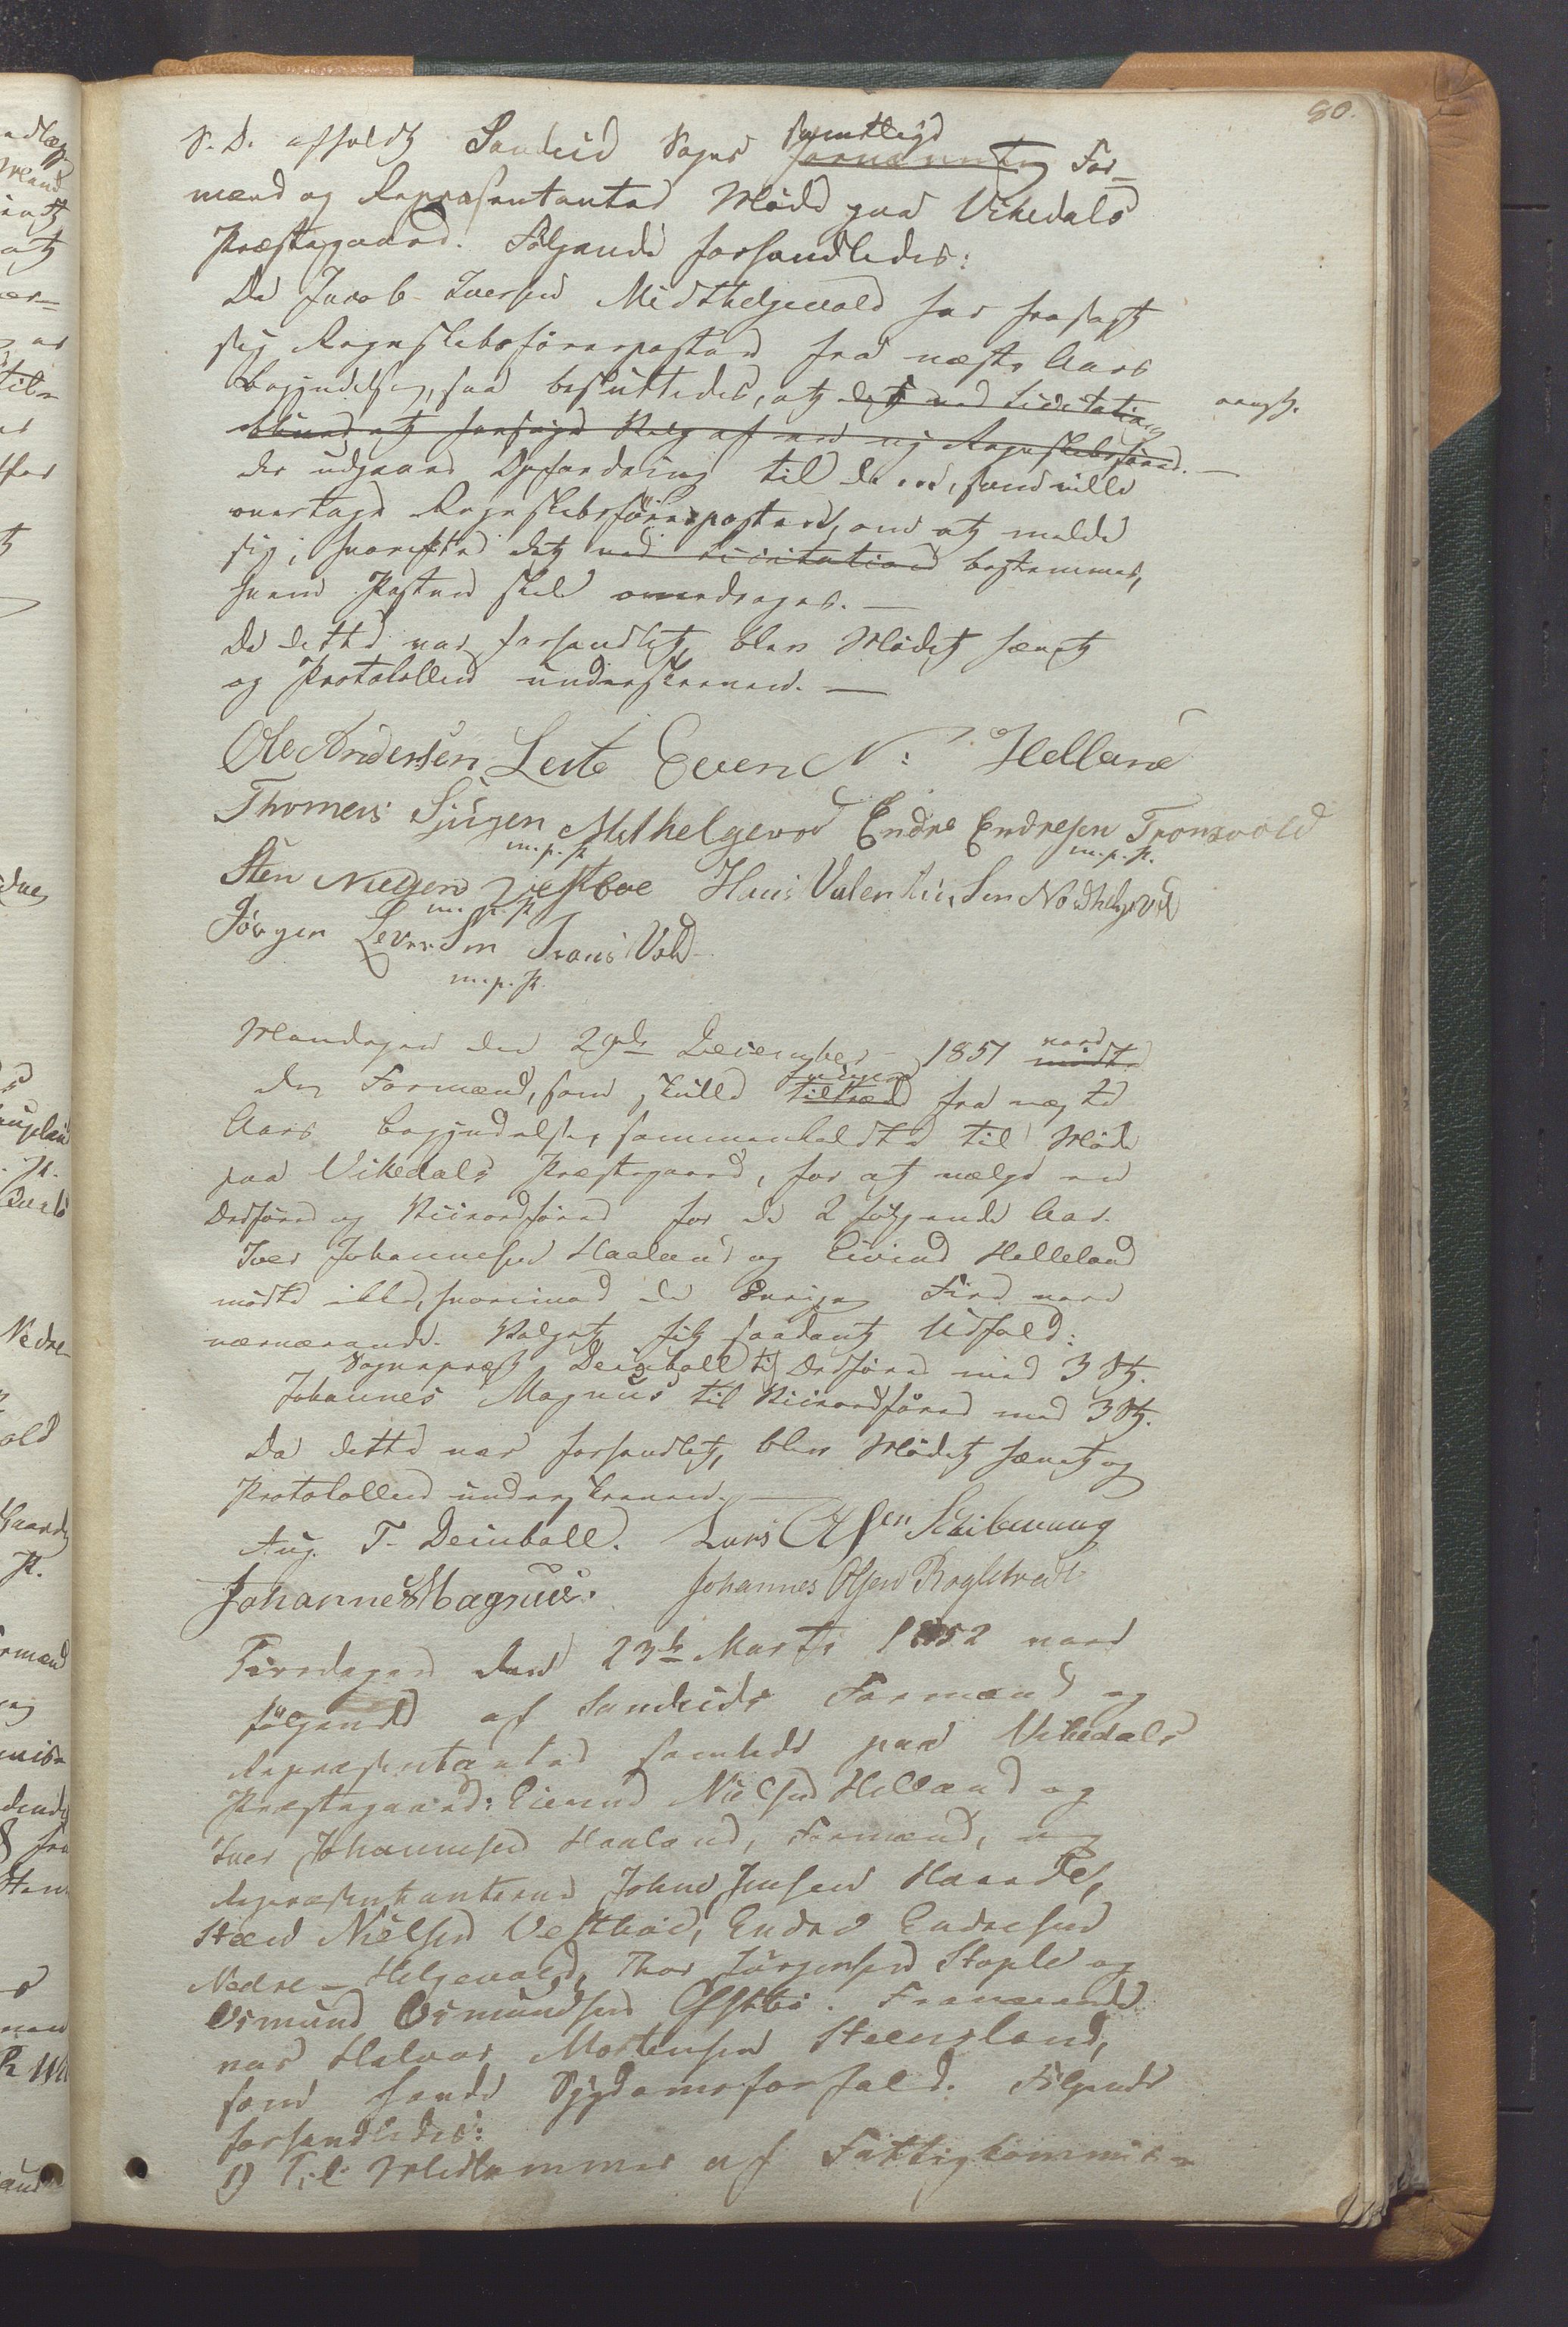 80.
S. D. afholdt Sandeid Sogns samtlige ~~fornævnte~~ For-
mænd og Repræsentanter Møde paa Vikedals
Præstegaard. Følgende forhandledes:
Da Jacob Iversen Midthelgevold har frasagt
sig Regnskabsførerposten fra næste Aars
Begyndelse, saa besluttedes, at ~~det ved Licitation~~
~~at forsøge Valg af en ny Regnskabsfører.~~ —
der udgaaer Opfordring til dem, som ville
overtage Regnskabsførerposten, om at melde
sig; hvorefter det ~~ved Licitation~~ bestemmes,
hvem Posten skal overdrages. —
Da dette var forhandlet, blev Mødet hævet
og Protokollen underskreven. —
Ole Andersen Leite Even N: Helland
Thomas Sjúrsen Mithelgevod Endre Endresen Tronsvold
m. p. P. m. p. P.
Sten Nielsen Vestboe Hans Valentinsen Nordhelgevold
m. p. P.
Jörgen Larsen Vold
m. p. P.
Mandagen den 29de December 1851 vare ~~mødte~~
de Formænd, som skulle fungere ~~tiltræde~~ fra næste
Aars Begyndelse, sammenkaldte til Møde
paa Vikedals Præstegaard, for at vælge en
Ordfører og Viceordfører for de 2 følgende Aar.
Iver Johannesen Haaland og Eivind Helleland
mødte ikke, hvorimod de øvrige Fire vare
nærværende. Valget fik saadant Udfald:
Sognepræst Deinboll til Ordfører med 3 St.
Johannes Magnus til Viceordfører med 3 St.
Da dette var forhandlet, blev Mødet hævet og
Protokollen underskreven. —
Aug. T. Deinboll. Lars Olsen Schibevaag
Johannes Magnus. Johannes Olsen
Tirsdagen den 23de Marts 1852 vare
følgende af Sandeids Formænd og
Repræsentanter samlede paa Vikedals
Præstegaard: Eivind Nielsen Helland og
Iver Johannesen Haaland, Formænd, og
Repræsentanterne John Jensen
Steen Nielsen Vestbøe, Endre Endresen
Nedre-Helgevold, Thor Jørgensen Stople og
Osmund Osmundsen Østbø. Fraværende
var Halvor Mortensen Steensland,
som havde Sygdomsforfald. Følgende
forhandledes:
1) Til Medlemmer af Fattigkommis-